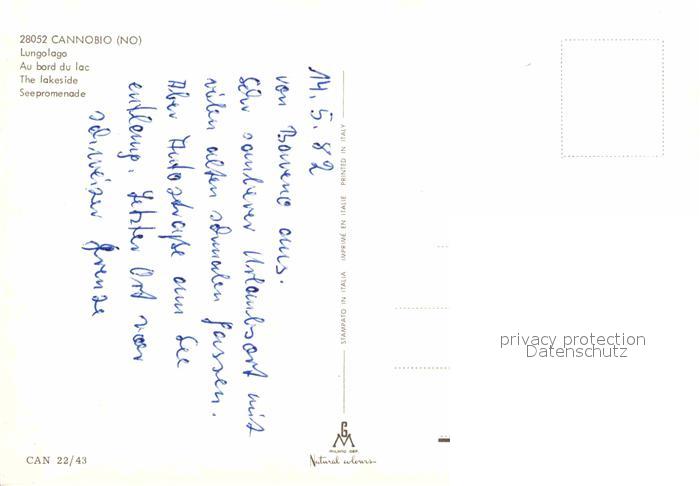 28052 CANNOBIO (NO)
Lungolago
Au bord du lac
The lakeside
Seepromenade
14.5.82
von Baveno aus.
Sehr sauberer Urlaubsort mit
vielen alten schmalen Gassen.
Aber Autostraße am See
entlang. Letzter Ort vor
schweizer Grenze
STAMPATO IN ITALIA IMPRIMÉ EN ITALIE PRINTED IN ITALY
privacy protection
Datenschutz
GM
MILANO DEP.
Natural colours
CAN 22/43